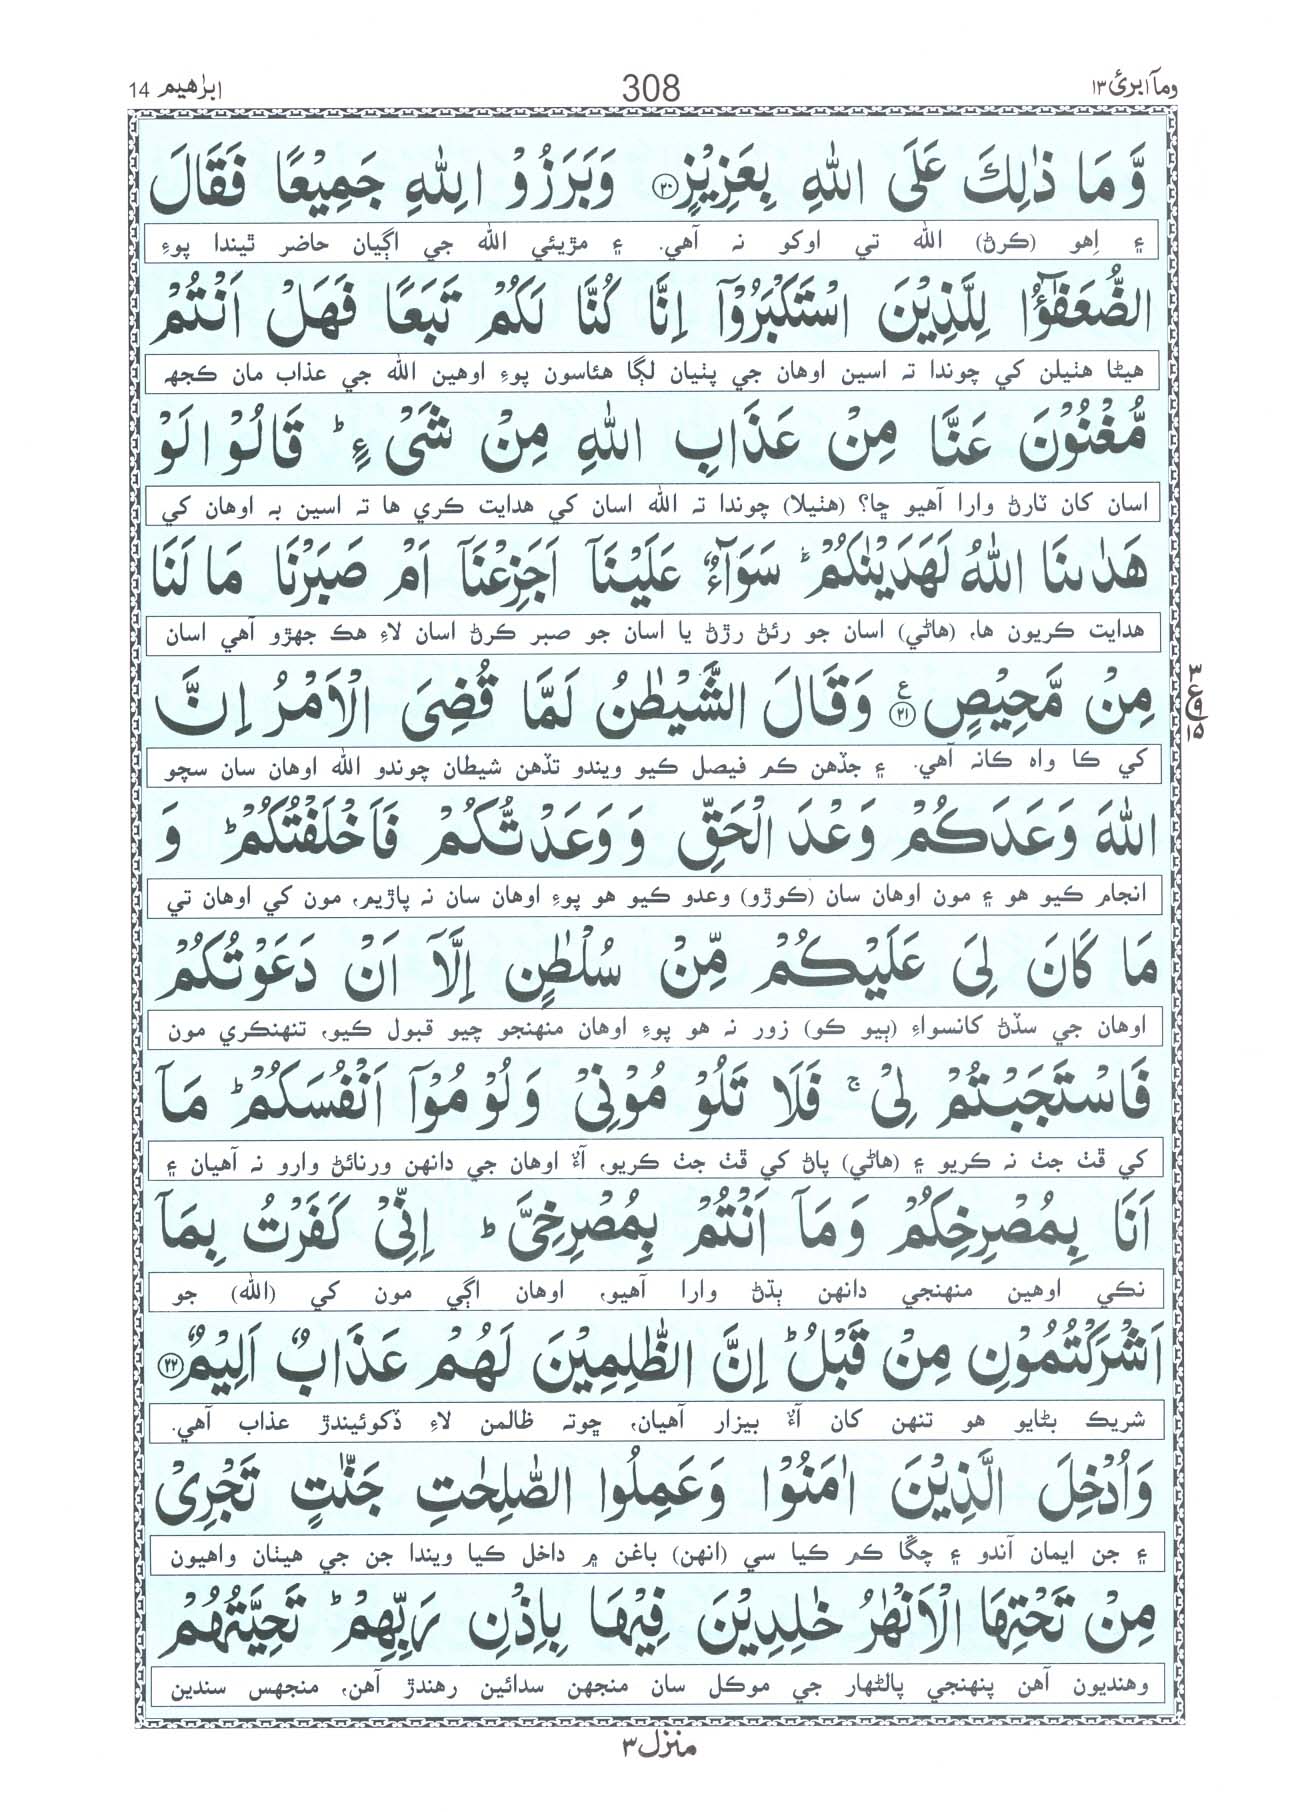 ابرٰهيم 14
308
ومآ ابرئ ١٣
وَّ مَا ذٰلِكَ عَلَى اللّٰهِ بِعَزِيْزٍ ۝٢٠ وَبَرَزُوْا لِلّٰهِ جَمِيْعًا فَقَالَ
۽ اِهو (ڪرڻ) الله تي اوکو نہ آهي. ۽ مڙيئي الله جي اڳيان حاضر ٿيندا پوءِ
الضُّعَفٰٓؤُا لِلَّذِيْنَ اسْتَكْبَرُوْٓا اِنَّا كُنَّا لَكُمْ تَبَعًا فَهَلْ اَنْتُمْ
هيڻا هٺيلن کي چوندا تہ اسين اوهان جي پٺيان لڳا هئاسون پوءِ اوهين الله جي عذاب مان ڪجهہ
مُّغْنُوْنَ عَنَّا مِنْ عَذَابِ اللّٰهِ مِنْ شَیْءٍ ؕ قَالُوْا لَوْ
اسان کان ٽارڻ وارا آهيو ڇا؟ (هٺيلا) چوندا تہ الله اسان کي هدايت ڪري ها تہ اسين بہ اوهان کي
هَدٰىنَا اللّٰهُ لَهَدَيْنٰكُمْ ؕ سَوَآءٌ عَلَيْنَآ اَجَزِعْنَآ اَمْ صَبَرْنَا مَا لَنَا
هدايت ڪريون ها، (هاڻي) اسان جو رئڻ رڙڻ يا اسان جو صبر ڪرڻ اسان لاءِ هڪ جهڙو آهي اسان
مِنْ مَّحِيْصٍ ۝٢١ ع وَقَالَ الشَّيْطٰنُ لَمَّا قُضِىَ الْاَمْرُ اِنَّ
٣ ع ١٥
کي ڪا واہ ڪانہ آهي. ۽ جڏهن ڪم فيصل ڪيو ويندو تڏهن شيطان چوندو الله اوهان سان سچو
اللّٰهَ وَعَدَكُمْ وَعْدَ الْحَقِّ وَ وَعَدْتُّكُمْ فَاَخْلَفْتُكُمْ ؕ وَ
انجام ڪيو هو ۽ مون اوهان سان (ڪوڙو) وعدو ڪيو هو پوءِ اوهان سان نہ پاڙيم، مون کي اوهان تي
مَا كَانَ لِىَ عَلَيْكُمْ مِّنْ سُلْطٰنٍ اِلَّآ اَنْ دَعَوْتُكُمْ
اوهان جي سڏڻ کانسواءِ (ٻيو ڪو) زور نہ هو پوءِ اوهان منهنجو چيو قبول ڪيو، تنهنڪري مون
فَاسْتَجَبْتُمْ لِىْ ۚ فَلَا تَلُوْمُوْنِىْ وَلُوْمُوْٓا اَنْفُسَكُمْ ؕ مَآ
کي ڦٽ جٽ نہ ڪريو ۽ (هاڻي) پاڻ کي ڦٽ جٽ ڪريو، آءٌ اوهان جي دانهن ورنائڻ وارو نہ آهيان ۽
اَنَا بِمُصْرِخِكُمْ وَمَآ اَنْتُمْ بِمُصْرِخِىَّ ؕ اِنِّىْ كَفَرْتُ بِمَآ
نڪي اوهين منهنجي دانهن ٻڌڻ وارا آهيو، اوهان اڳي مون کي (الله) جو
اَشْرَكْتُمُوْنِ مِنْ قَبْلُ ؕ اِنَّ الظّٰلِمِيْنَ لَهُمْ عَذَابٌ اَلِيْمٌ ۝٢٢
شريڪ بڻايو هو تنهن کان آءٌ بيزار آهيان، ڇوتہ ظالمن لاءِ ڏکوئيندڙ عذاب آهي.
وَاُدْخِلَ الَّذِيْنَ اٰمَنُوْا وَعَمِلُوا الصّٰلِحٰتِ جَنّٰتٍ تَجْرِىْ
۽ جن ايمان آندو ۽ چڱا ڪم ڪيا سي (انهن) باغن ۾ داخل ڪيا ويندا جن جي هيٺان واهيون
مِنْ تَحْتِهَا الْاَنْهٰرُ خٰلِدِيْنَ فِيْهَا بِاِذْنِ رَبِّهِمْ ؕ تَحِيَّتُهُمْ
وهنديون آهن پنهنجي پالڻهار جي موڪل سان منجهن سدائين رهندڙ آهن، منجهس سندين
منزل ٣